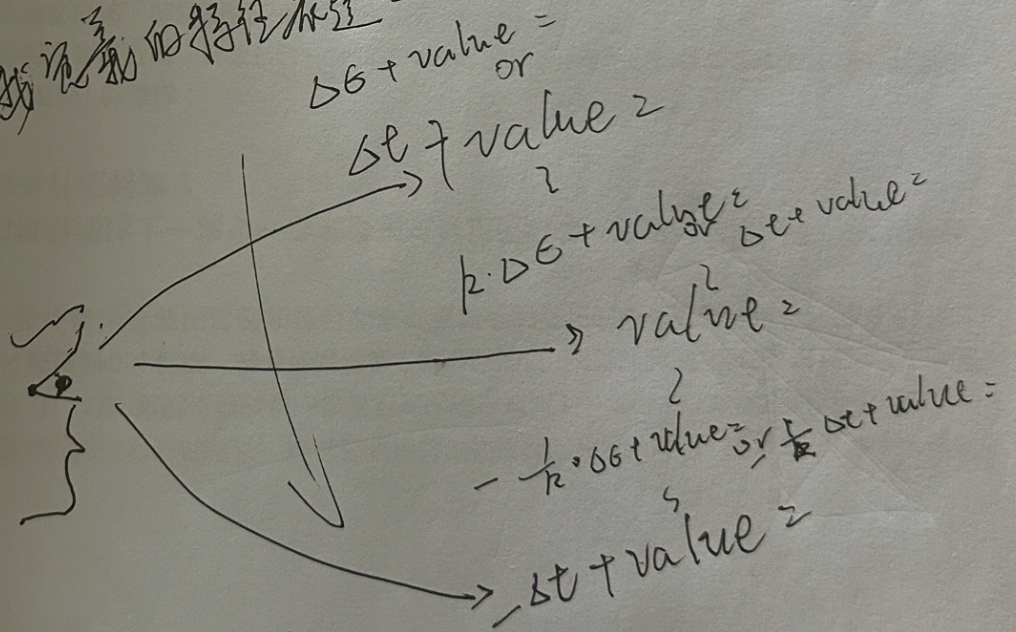 我定義的特征
Δϵ + value =
or
Δt + value =
k·Δϵ + value = or Δt + value =
value =
- 1/k · Δϵ + value = or - 1/k Δt + value =
- Δt + value =